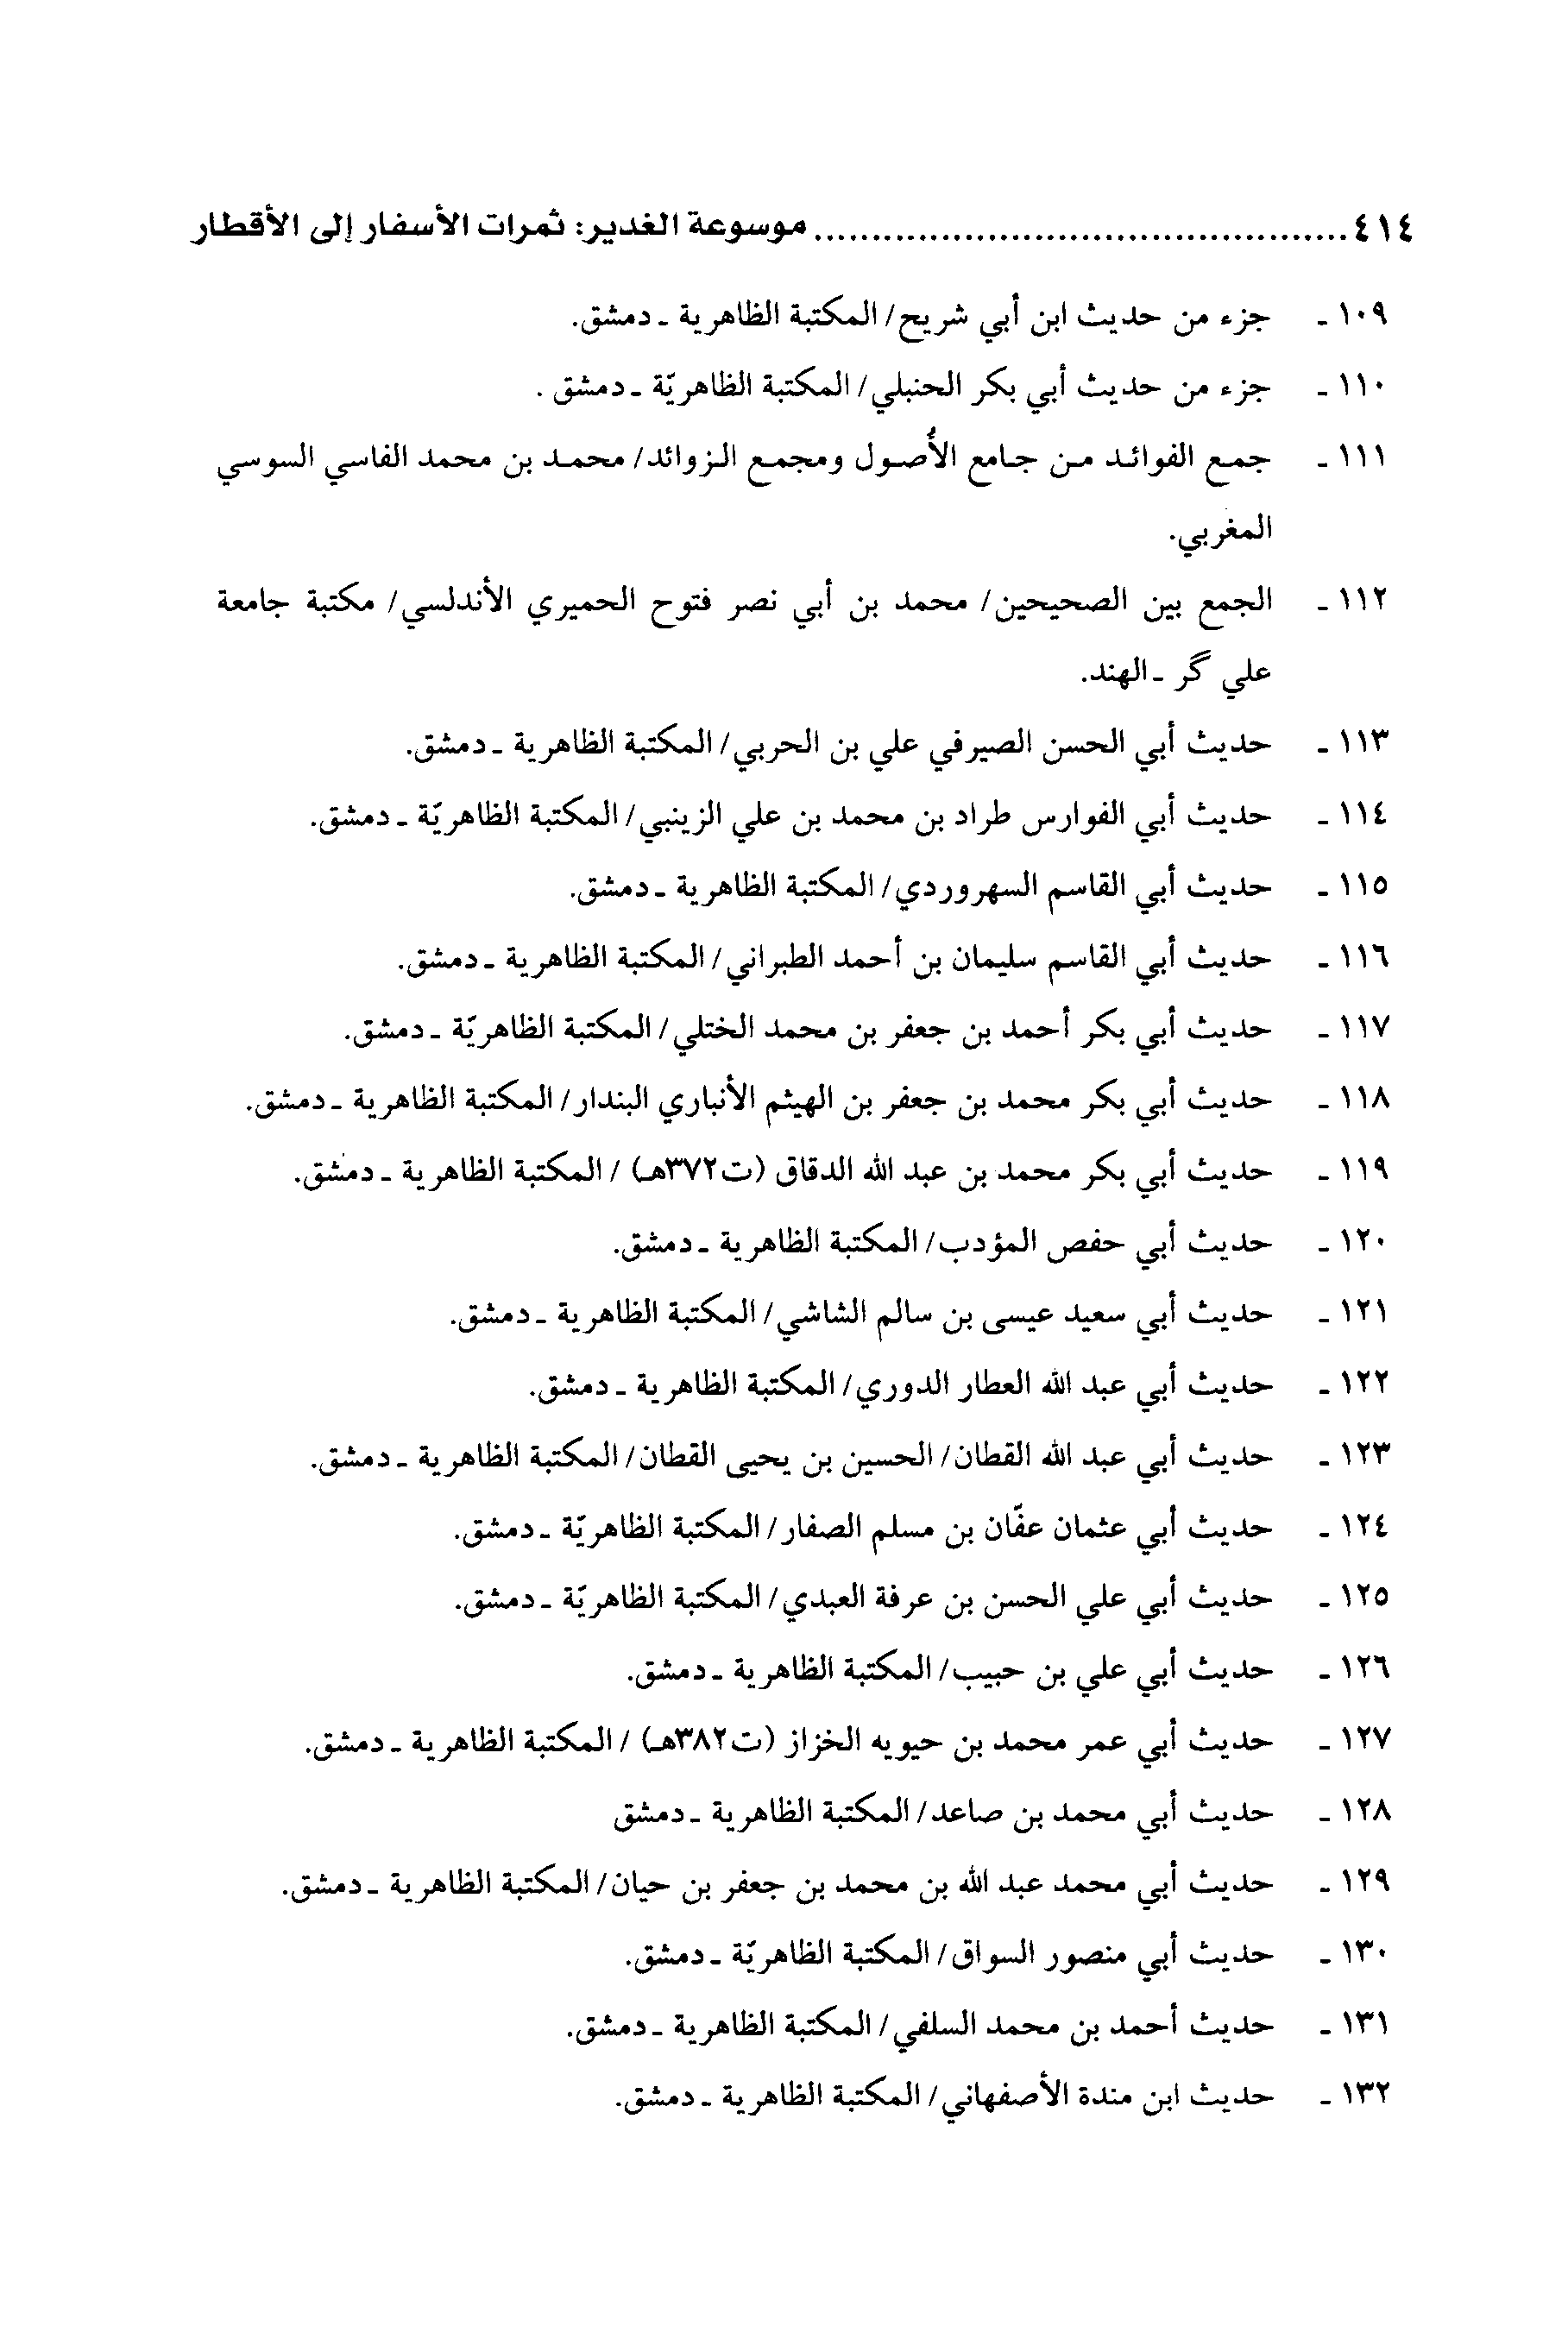 ٤١٤ .............................................. موسوعة الغدير: ثمرات الأسفار إلى الأقطار
١٠٩ ـ جزء من حديث ابن أبي شريح/ المكتبة الظاهرية ـ دمشق.
١١٠ ـ جزء من حديث أبي بكر الحنبلي/ المكتبة الظاهريّة ـ دمشق .
١١١ ـ جمع الفوائد من جامع الأُصول ومجمع الزوائد/ محمد بن محمد الفاسي السوسي
المغربي.
١١٢ ـ الجمع بين الصحيحين/ محمد بن أبي نصر فتوح الحميري الأندلسي/ مكتبة جامعة
علي گر ـ الهند.
١١٣ ـ حديث أبي الحسن الصيرفي علي بن الحربي/ المكتبة الظاهرية ـ دمشق.
١١٤ ـ حديث أبي الفوارس طراد بن محمد بن علي الزينبي/ المكتبة الظاهريّة ـ دمشق.
١١٥ ـ حديث أبي القاسم السهروردي/ المكتبة الظاهرية ـ دمشق.
١١٦ ـ حديث أبي القاسم سليمان بن أحمد الطبراني/ المكتبة الظاهرية ـ دمشق.
١١٧ ـ حديث أبي بكر أحمد بن جعفر بن محمد الختلي/ المكتبة الظاهريّة ـ دمشق.
١١٨ ـ حديث أبي بكر محمد بن جعفر بن الهيثم الأنباري البندار/ المكتبة الظاهرية ـ دمشق.
١١٩ ـ حديث أبي بكر محمد بن عبد الله الدقاق (ت٣٧٢هـ) / المكتبة الظاهرية ـ دمشق.
١٢٠ ـ حديث أبي حفص المؤدب/ المكتبة الظاهرية ـ دمشق.
١٢١ ـ حديث أبي سعيد عيسى بن سالم الشاشي/ المكتبة الظاهرية ـ دمشق.
١٢٢ ـ حديث أبي عبد الله العطار الدوري/ المكتبة الظاهرية ـ دمشق.
١٢٣ ـ حديث أبي عبد الله القطان/ الحسين بن يحيى القطان/ المكتبة الظاهرية ـ دمشق.
١٢٤ ـ حديث أبي عثمان عفّان بن مسلم الصفار/ المكتبة الظاهريّة ـ دمشق.
١٢٥ ـ حديث أبي علي الحسن بن عرفة العبدي/ المكتبة الظاهريّة ـ دمشق.
١٢٦ ـ حديث أبي علي بن حبيب/ المكتبة الظاهرية ـ دمشق.
١٢٧ ـ حديث أبي عمر محمد بن حيويه الخزاز (ت٣٨٢هـ) / المكتبة الظاهرية ـ دمشق.
١٢٨ ـ حديث أبي محمد بن صاعد/ المكتبة الظاهرية ـ دمشق
١٢٩ ـ حديث أبي محمد عبد الله بن محمد بن جعفر بن حيان/ المكتبة الظاهرية ـ دمشق.
١٣٠ ـ حديث أبي منصور السواق/ المكتبة الظاهريّة ـ دمشق.
١٣١ ـ حديث أحمد بن محمد السلفي/ المكتبة الظاهرية ـ دمشق.
١٣٢ ـ حديث ابن مندة الأصفهاني/ المكتبة الظاهرية ـ دمشق.